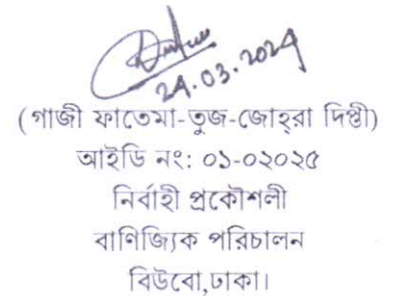 24.03.2024
(গাজী ফাতেমা-তুজ-জোহ্‌রা দিপ্তী)
আইডি নং: ০১-০২০২৫
নির্বাহী প্রকৌশলী
বাণিজ্যিক পরিচালন
বিউবো,ঢাকা।